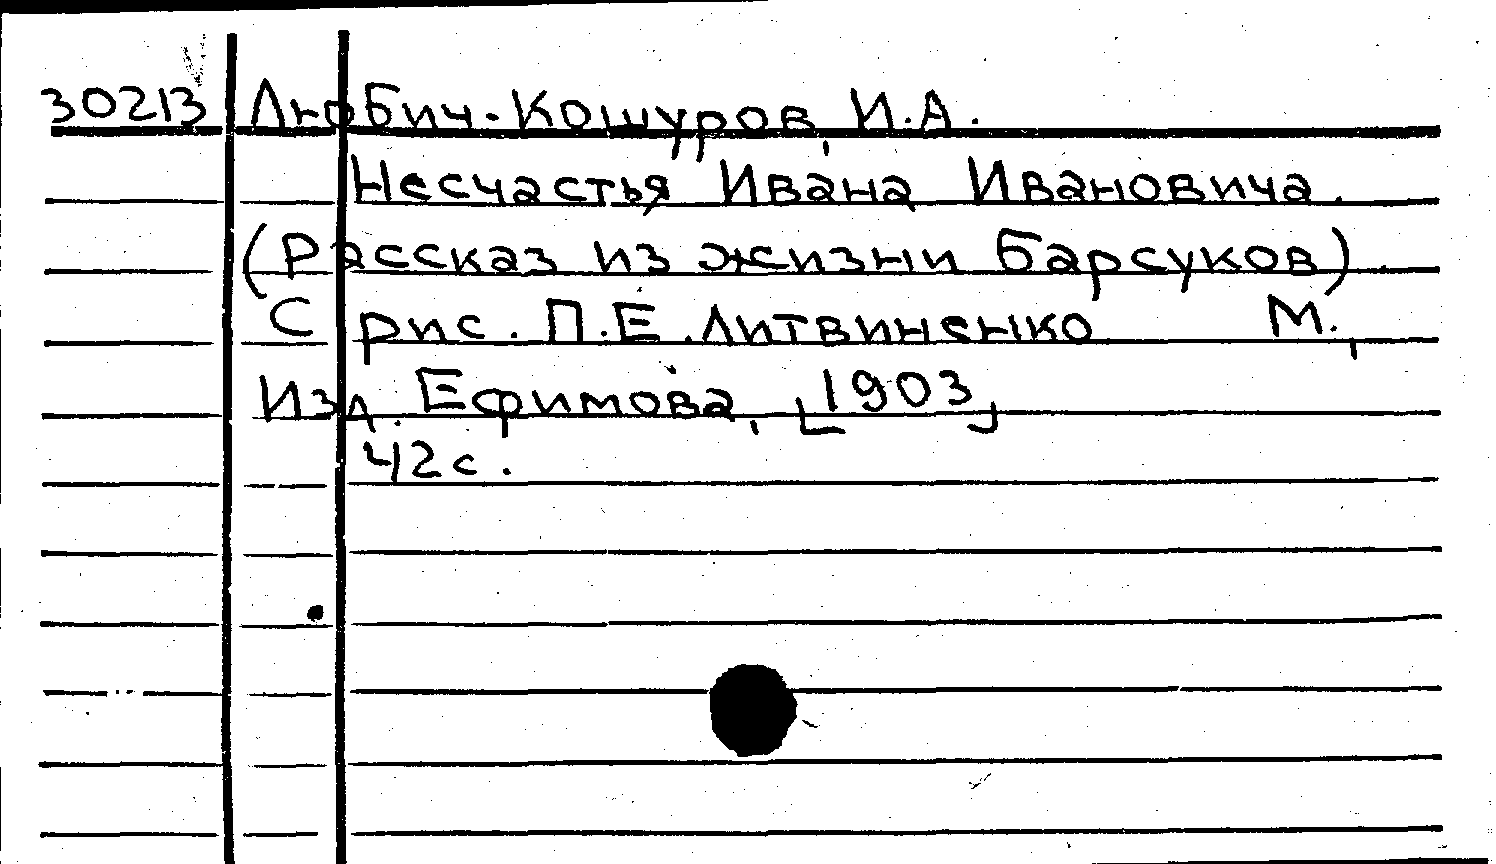 30213 Любич-Кошуров, И.А.
Несчастья Ивана Ивановича.
(Рассказ из жизни барсуков).
С рис. П.Е. Литвиненко М.,
Изд. Ефимова, [1903]
42 с.